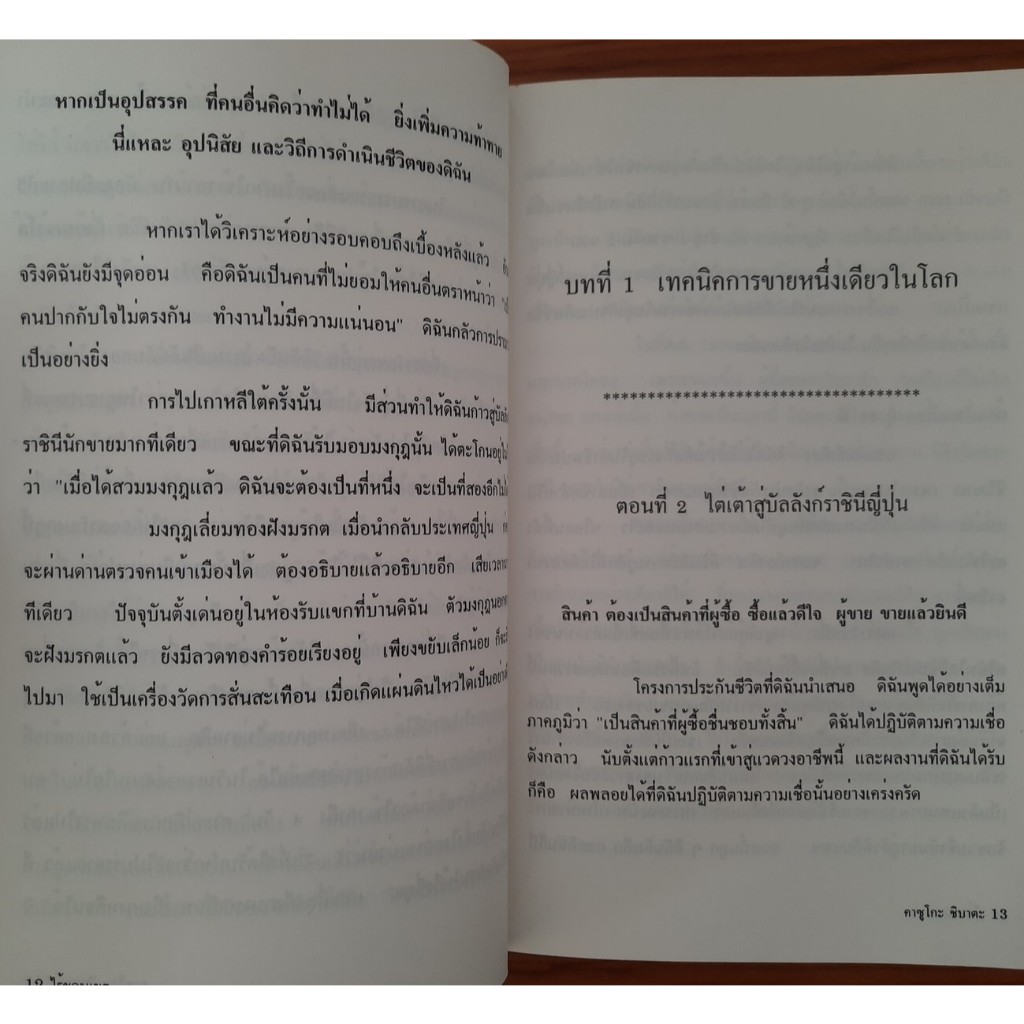 หากเป็นอุปสรรค ที่คนอื่นคิดว่าทำไม่ได้ ยิ่งเพิ่มความท้าทาย
นี่แหละ อุปนิสัย และวิถีการดำเนินชีวิตของดิฉัน
หากเราได้วิเคราะห์อย่างรอบคอบถึงเบื้องหลังแล้ว
จริงดิฉันยังมีจุดอ่อน คือดิฉันเป็นคนที่ไม่ยอมให้คนอื่นตราหน้าว่า
คนปากกับใจไม่ตรงกัน ทำงานไม่มีความแน่นอน" ดิฉันกลัวการ
เป็นอย่างยิ่ง
การไปเกาหลีใต้ครั้งนั้น มีส่วนทำให้ดิฉันก้าวสู่
ราชินีนักขายมากทีเดียว ขณะที่ดิฉันรับมอบมงกุฎนั้น ได้ตะโกนอยู่
ว่า "เมื่อได้สวมมงกุฎแล้ว ดิฉันจะต้องเป็นที่หนึ่ง จะเป็นที่สองอีก
มงกุฎเลี่ยมทองฝังมรกต เมื่อนำกลับประเทศญี่ปุ่น
จะผ่านด่านตรวจคนเข้าเมืองได้ ต้องอธิบายแล้วอธิบายอีก
ทีเดียว ปัจจุบันตั้งเด่นอยู่ในห้องรับแขกที่บ้านดิฉัน ตัวมงกุฎ
จะฝังมรกตแล้ว ยังมีลวดทองคำร้อยเรียงอยู่ เพียงขยับเล็กน้อย
ไปมา ใช้เป็นเครื่องวัดการสั่นสะเทือน เมื่อเกิดแผ่นดินไหวได้เป็น
บทที่ 1 เทคนิคการขายหนึ่งเดียวในโลก
************************************
ตอนที่ 2 ไต่เต้าสู่บัลลังก์ราชินีญี่ปุ่น
สินค้า ต้องเป็นสินค้าที่ผู้ซื้อ ซื้อแล้วดีใจ ผู้ขาย ขายแล้วยินดี
โครงการประกันชีวิตที่ดิฉันนำเสนอ ดิฉันพูดได้อย่างเต็ม
ภาคภูมิว่า "เป็นสินค้าที่ผู้ซื้อชื่นชอบทั้งสิ้น" ดิฉันได้ปฏิบัติตามความเชื่อ
ดังกล่าว นับตั้งแต่ก้าวแรกที่เข้าสู่แวดวงอาชีพนี้ และผลงานที่ดิฉันได้รับ
ก็คือ ผลพลอยได้ที่ดิฉันปฏิบัติตามความเชื่อนั้นอย่างเคร่งครัด
คาซูโกะ ชิบาตะ 13